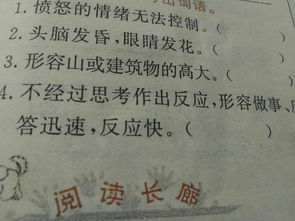 出词语。
1. 愤怒的情绪无法控制。(　　)
2. 头脑发昏,眼睛发花。(　　)
3. 形容山或建筑物的高大。(　　)
4. 不经过思考作出反应,形容做事、
答迅速,反应快。(　　)
阅读长廊